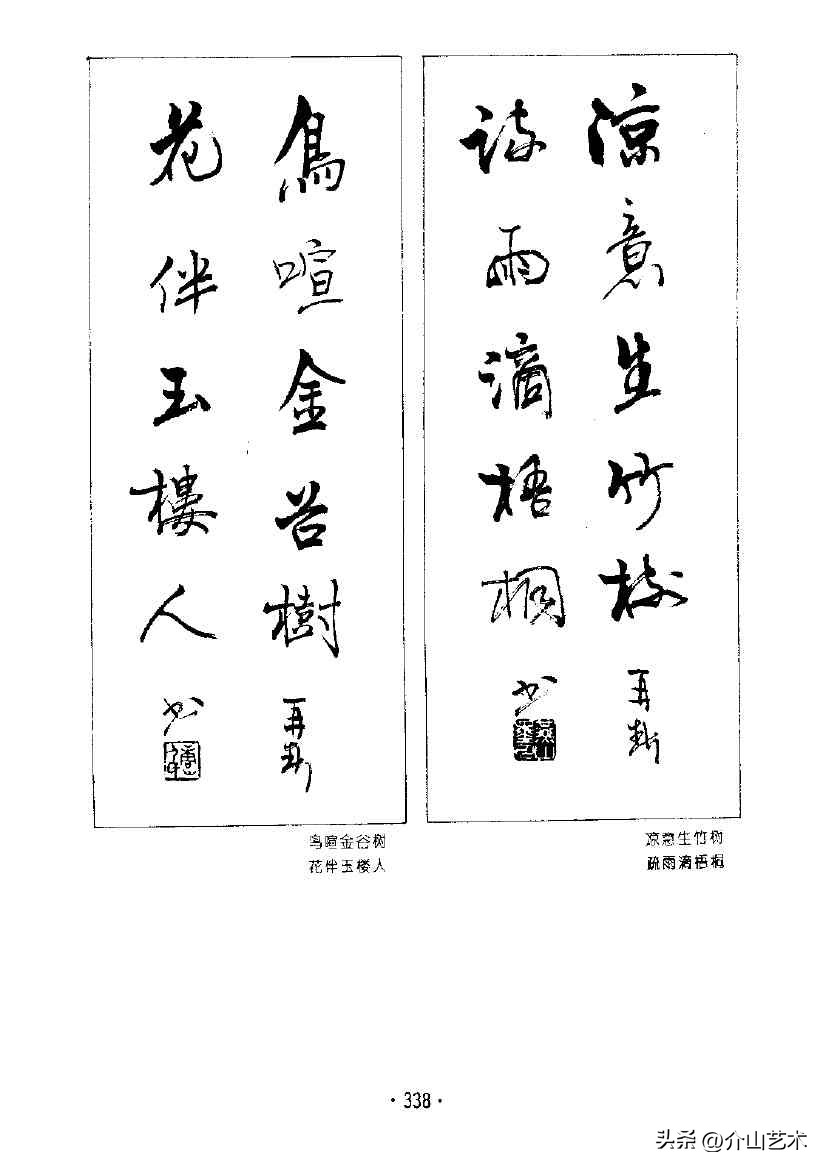 涼意生竹树
疎雨滴梧桐
书
鳥喧金谷樹
花伴玉樓人
书
凉意生竹树
疏雨滴梧桐
鸟喧金谷树
花伴玉楼人
·338·
头条 @介山艺术